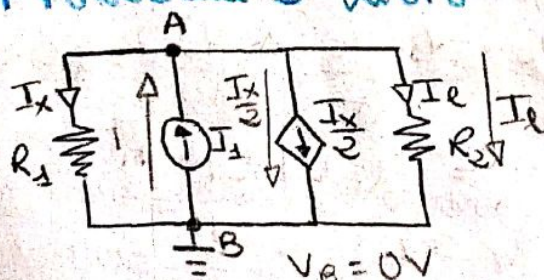 A
Ix
R1
I1
Ix/2
Ix/2
Il
R2
Il
B
VB = 0V